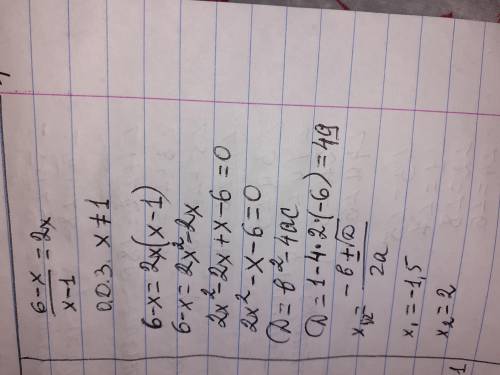 6-x/x-1 = 2x
О.О.З. x≠1
6-x=2x(x-1)
6-x=2x²-2x
2x²-2x+x-6=0
2x²-x-6=0
D=в²-4ac
D=1-4·2·(-6)=49
x₁,₂=-в±√D/2a
x₁=-1,5
x₂=2
1